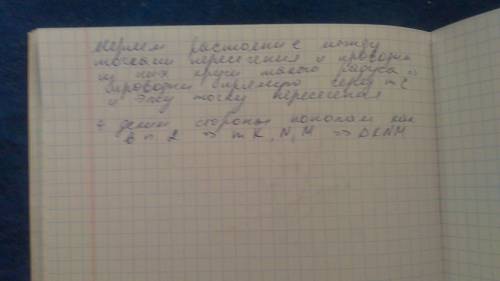 меряем растояние между
точками пересечения и проводим
из них круги такого радуса
проводим прямую через т C
и эту точку пересечения
4 делим стороны пополам как
в п 2 => т K, N, M => ΔKNM